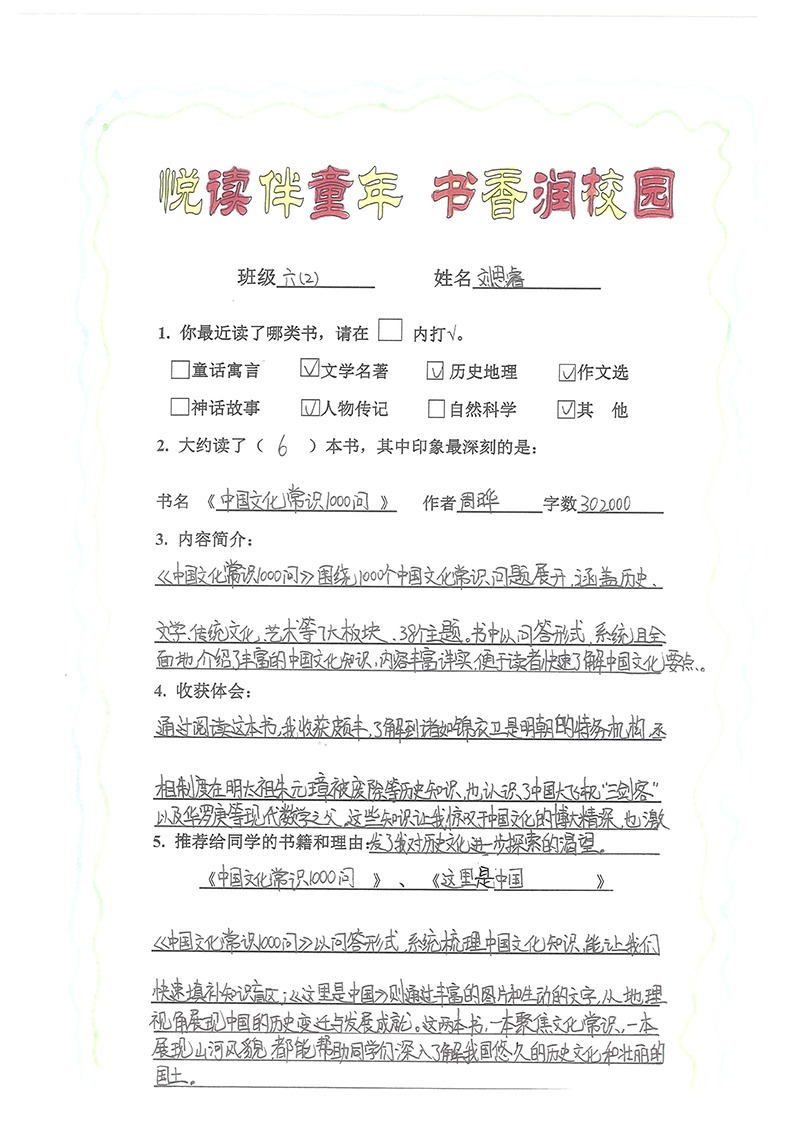 悦读伴童年 书香润校园
班级 六(2) 姓名 刘思睿
1. 你最近读了哪类书，请在 □ 内打√。
□童话寓言 ☑文学名著 ☑历史地理 ☑作文选
□神话故事 ☑人物传记 □自然科学 ☑其 他
2. 大约读了（ 6 ）本书，其中印象最深刻的是：
书名 《中国文化常识1000问 》 作者 周晔 字数 302000
3. 内容简介：
《中国文化常识1000问》围绕1000个中国文化常识问题展开，涵盖历史、
文学、传统文化，艺术等7大板块、38个主题。书中以问答形式，系统且全
面地介绍了丰富的中国文化知识，内容丰富详实，便于读者快速了解中国文化要点。
4. 收获体会：
通过阅读这本书，我收获颇丰，了解到诸如锦衣卫是明朝的特务机构，丞
相制度在明太祖朱元璋被废除等历史知识，也认识了中国大飞机“三剑客”
以及华罗庚等现代数学之父。这些知识让我惊叹于中国文化的博大精深，也激
5. 推荐给同学的书籍和理由：发了我对历史文化进一步探索的渴望。
《中国文化常识1000问 》、《这里是中国 》
《中国文化常识1000问》以问答形式，系统梳理中国文化知识，能让我们
快速填补知识盲区；《这里是中国》则通过丰富的图片和生动的文字，从地理
视角展现中国的历史变迁与发展成就。这两本书，一本聚焦文化常识，一本
展现山河风貌，都能帮助同学们深入了解我国悠久的历史文化和壮丽的
国土。